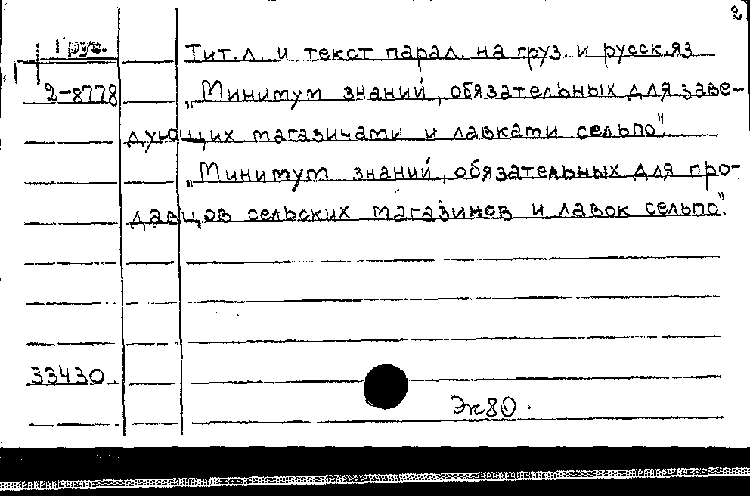 2
Груз. Тит.л. и текст парал. на груз. и русск.яз
2-8778 „Минимум знаний, обязательных для заве-
дующих магазинами и лавками сельпо".
„Минимум знаний, обязательных для про-
давцов сельских магазинов и лавок сельпо".
33430
Эк80.